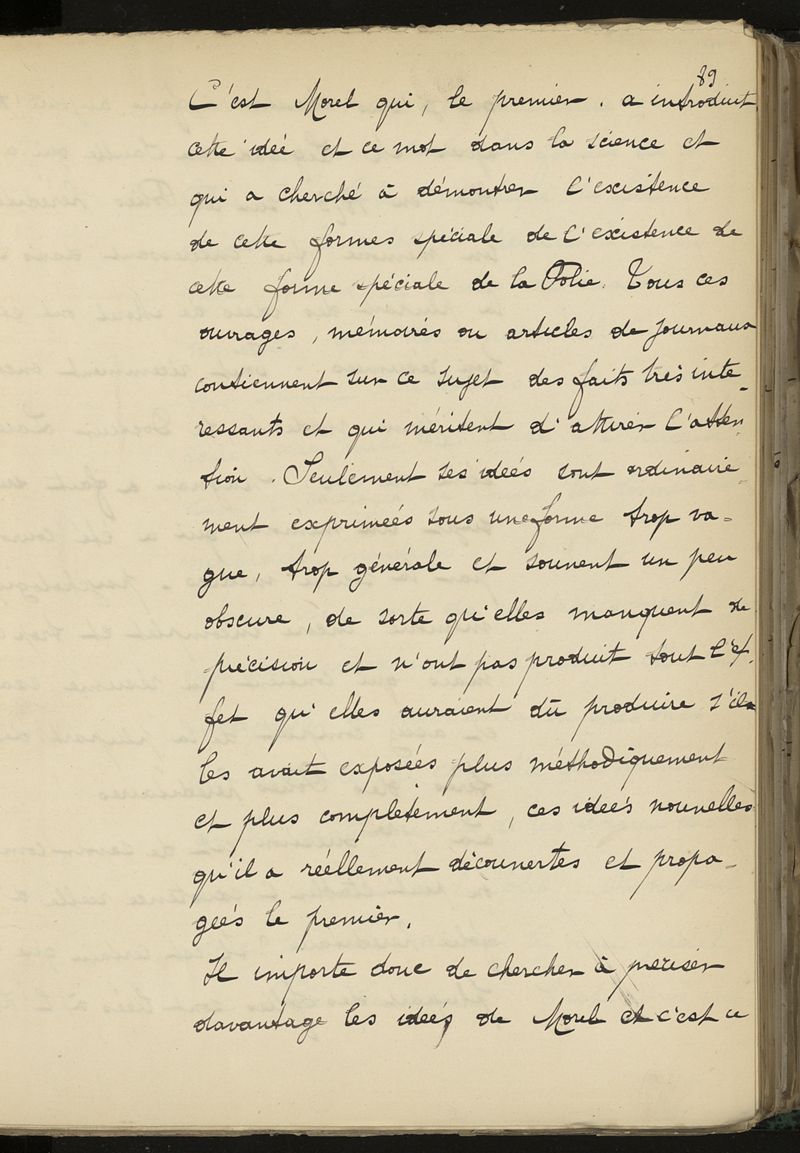 89
C'est Morel qui, le premier. a introduit
cette idée et ce mot dans la science et
qui a cherché à démontrer l'existence
de cette formes spéciale de l'existence de
cette forme spéciale de la Folie. Tous ces
ouvrages, mémoirés ou articles de journaux
contiennent sur ce sujet des faits très inte-
ressants et qui méritent d'attirér l'atten
tion. Seulement ses idées sont ordinaire-
ment expriméés sous une forme trop va-
gue, trop générale et souvent un peu
obscure, de sorte qu'elles manquent de
précision et n'ont pas produit tout l'ef.
fet qu'elles auraient dû produire s'il
les avait exposées plus méthodiquement
et plus complètement, ces ideés nouvelles
qu'il a réellement découvertes et propa-
geés le premier.
Il importe donc de chercher à preciser
davantage les ideés de Morel et c'est ce